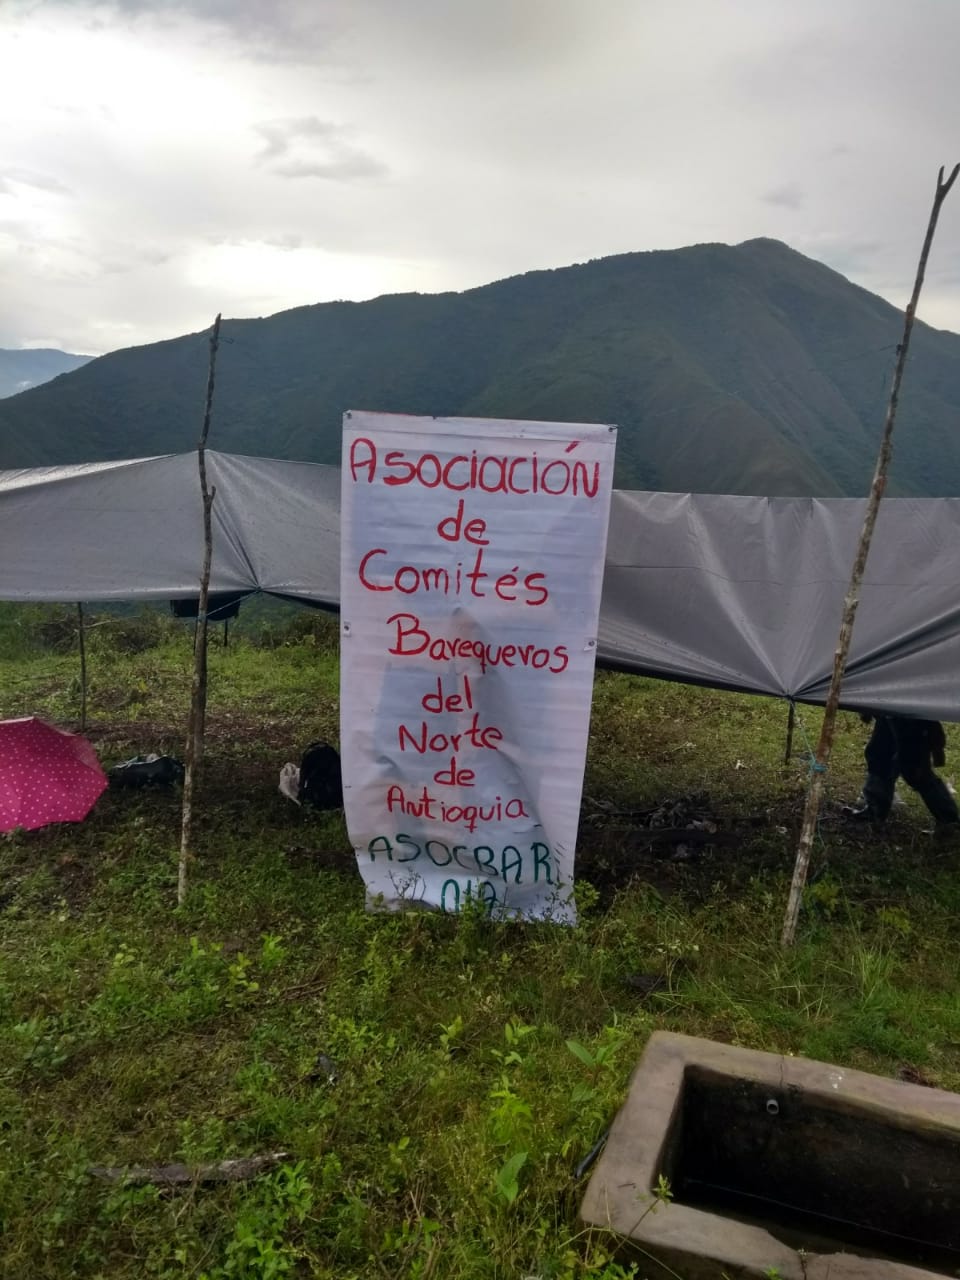 Asociación
de
Comités
Barequeros
del
Norte
de
Antioquia
ASOCBAR